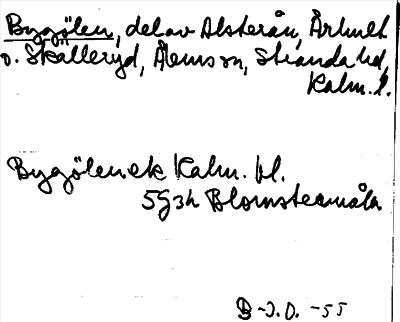 Bygölen, del av Alsterån, Århult
o. Skälleryd, Ålems sn, Stranda hd,
Kalm. l.
Bygölen ek Kalm. bl.
5g3h Blomstermåla
B-J.O. -55